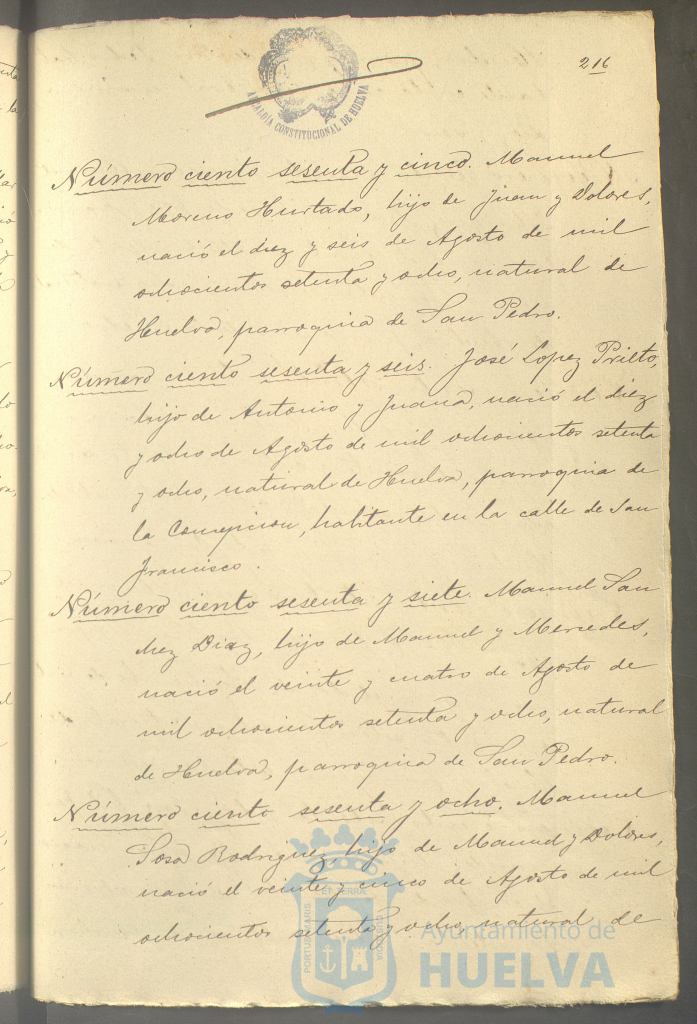 216
ALCALDIA CONSTITUCIONAL DE HUELVA
Número ciento sesenta y cinco. Manuel
Moreno Hurtado, hijo de Juan y Dolores,
nació el diez y seis de Agosto de mil
ochocientos setenta y ocho, natural de
Huelva, parroquia de San Pedro.
Número ciento sesenta y seis. José Lopez Prieto,
hijo de Antonio y Juana, nació el diez
y ocho de Agosto de mil ochocientos setenta
y ocho, natural de Huelva, parroquia de
la Concepcion, habitante en la calle de San
Francisco.
Número ciento sesenta y siete. Manuel San
chez Diaz, hijo de Manuel y Mercedes,
nació el veinte y cuatro de Agosto de
mil ochocientos setenta y ocho, natural
de Huelva, parroquia de San Pedro.
Número ciento sesenta y ocho. Manuel
Sosa Rodriguez, hijo de Manuel y Dolores,
nació el veinte y cinco de Agosto de mil
ochocientos setenta y ocho, natural de
PORTUS MARIS ET TERRE CUSTODIA
Ayuntamiento de
HUELVA